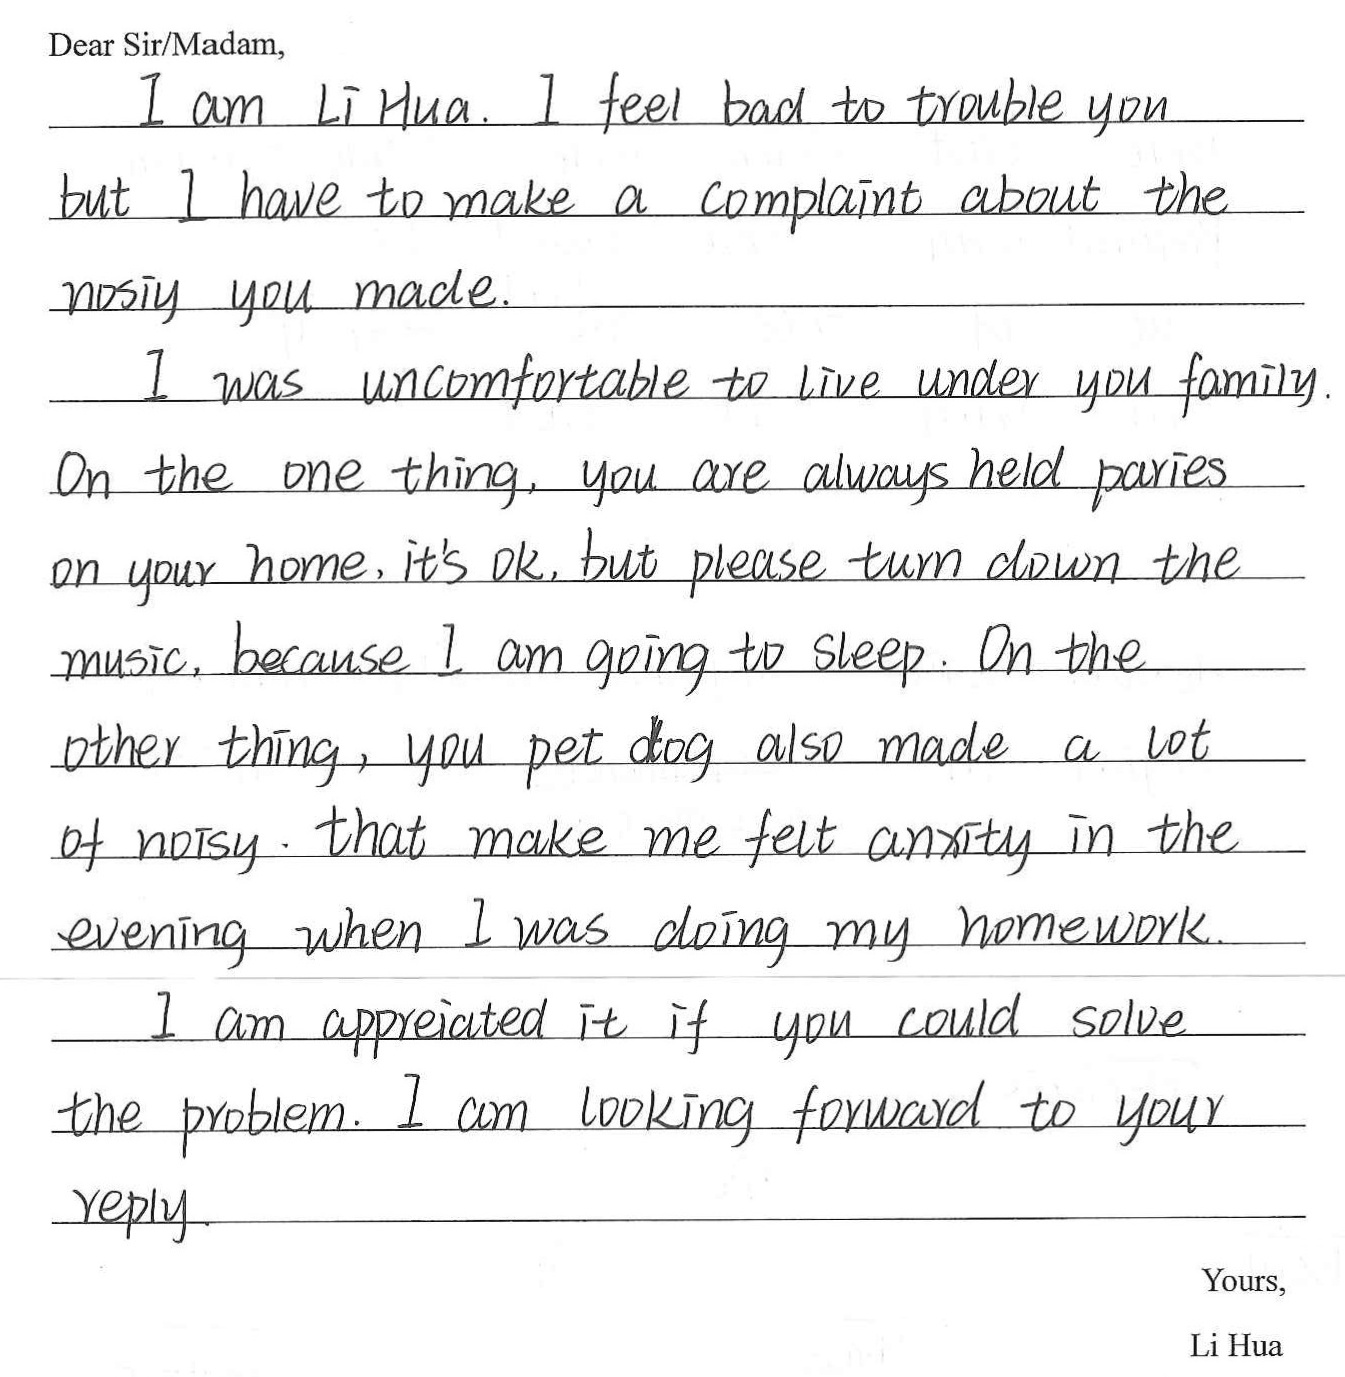 Dear Sir/Madam,
I am Li Hua. I feel bad to trouble you
but I have to make a complaint about the
nosiy you made.
I was uncomfortable to live under you family.
On the one thing, you are always held paries
on your home, it's ok, but please turn down the
music, because I am going to sleep. On the
other thing, you pet dog also made a lot
of noisy. that make me felt anxity in the
evening when I was doing my homework.
I am appreiated it if you could solve
the problem. I am looking forward to your
reply.
Yours,
Li Hua